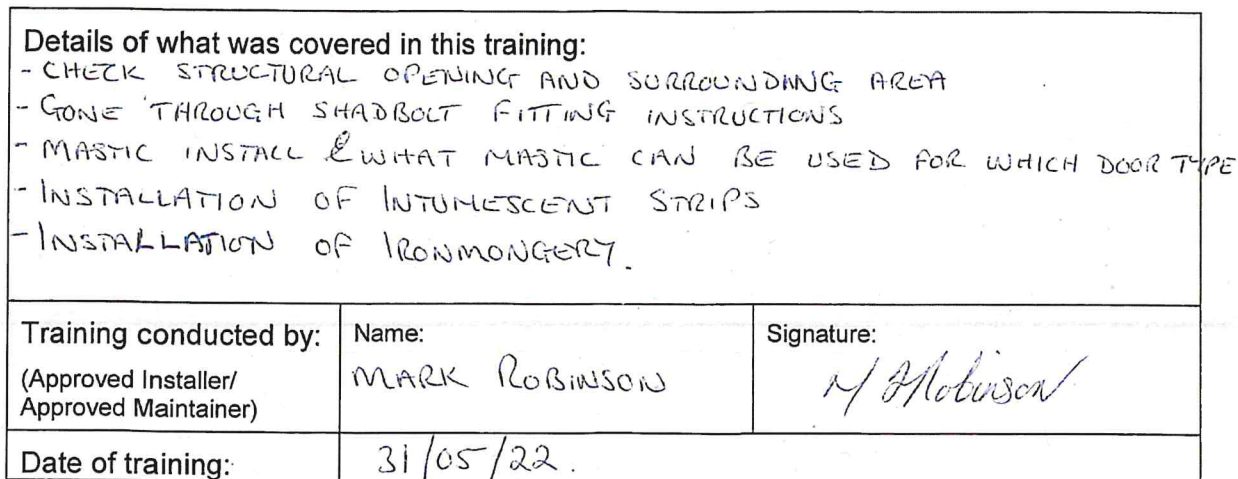 Details of what was covered in this training:
- CHECK STRUCTURAL OPENING AND SURROUNDING AREA
- GONE THROUGH SHADBOLT FITTING INSTRUCTIONS
- MASTIC INSTALL & WHAT MASTIC CAN BE USED FOR WHICH DOOR TYPE
- INSTALLATION OF INTUMESCENT STRIPS
- INSTALLATION OF IRONMONGERY.
Training conducted by:
(Approved Installer/
Approved Maintainer)
Name:
MARK ROBINSON
Signature:
M Robinson
Date of training:
31/05/22.